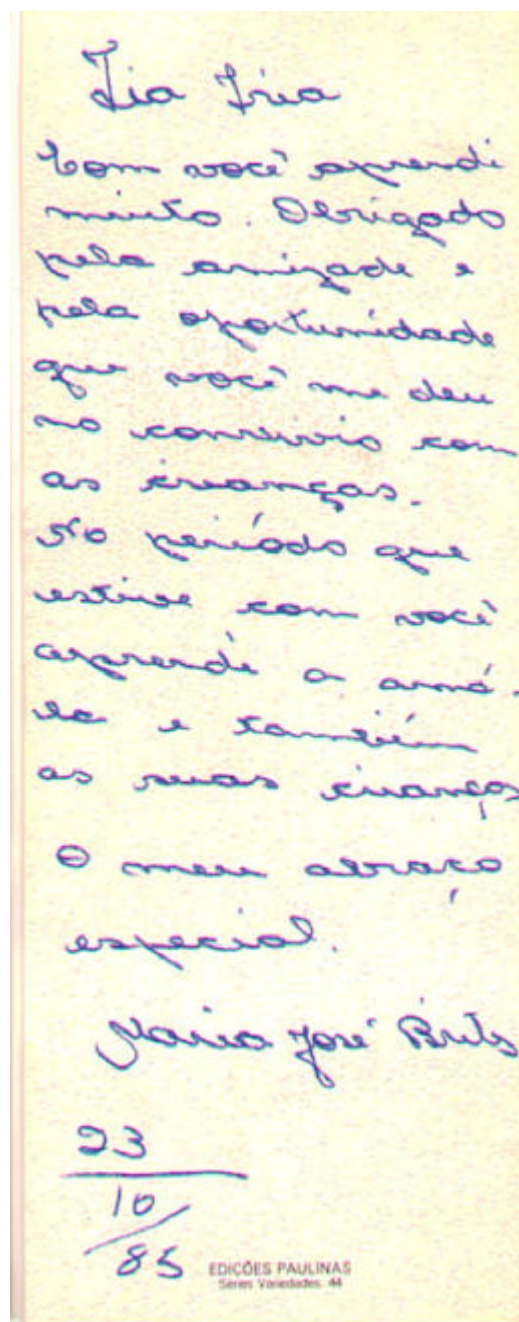 Tia Iria
Com você aprendi
muito. Obrigado
pela amizade e
pela oportunidade
que você me deu
no convivio com
as crianças.
No período que
estive com você
aprendi a amá-
la e também
as suas crianças
O meu abraço
especial.
Maria José Brito
23
10
85
EDIÇÕES PAULINAS
Séries Variedades. 44